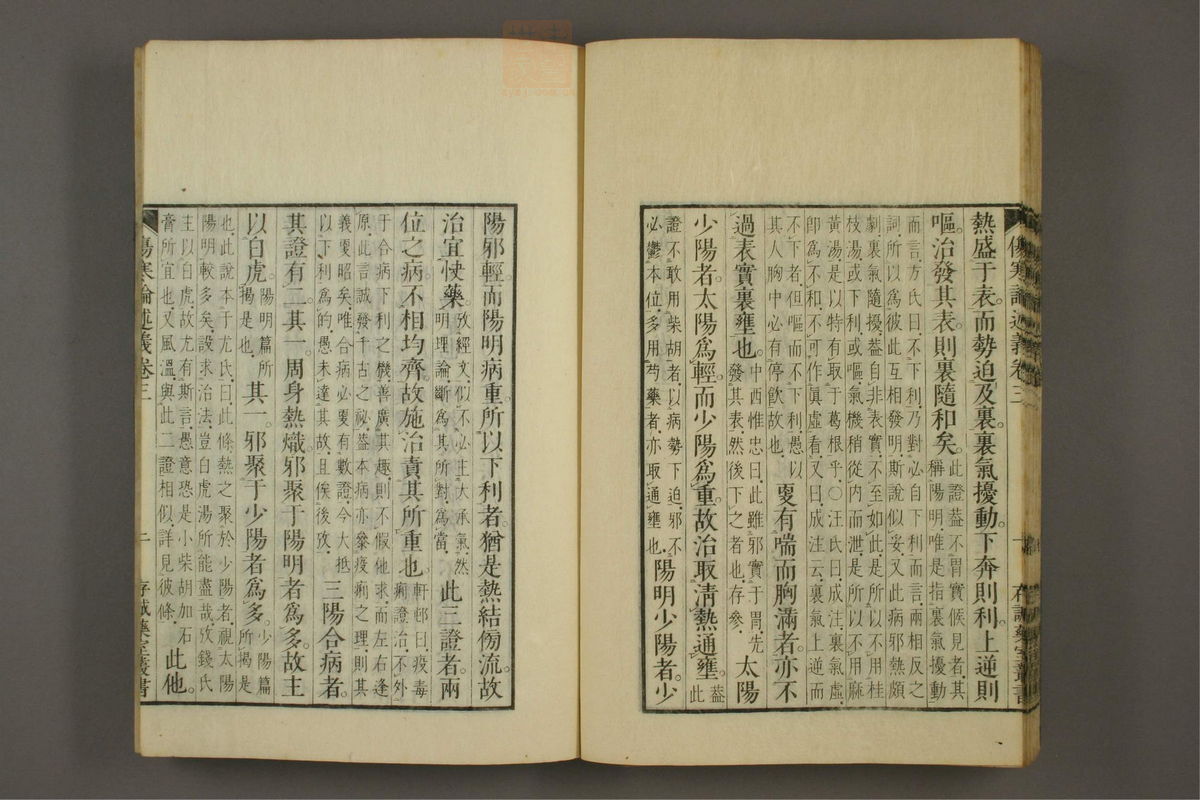 傷寒論述義卷三
存誠藥室叢書
熱盛于表。而勢迫及裏。裏氣擾動。下奔則利。上逆則
嘔。治發其表。則裏隨和矣。
此證葢不胃實候見者。其
稱陽明唯是指裏氣擾動
而言。方氏曰。不下利。乃對必自下利而言。兩相反之
詞。所以爲彼此互相發明。斯說似妥。又此病邪熱頗
剩。裏氣隨擾。葢自非表實。不至如此。是所以不用桂
枝湯。或下利。或嘔。氣機稍從内而泄。是所以不用麻
黃湯。是以特有取于葛根乎。○汪氏曰。成注裏氣虛
卽爲不和。不可作眞虛看。又曰。成注云。裏氣上逆而
不下者。但嘔而不下利。愚以
其人胸中必有停飲故也。
夏有喘而胸滿者。亦不
過表實裏壅也。
中西惟忠曰。此雖邪實于胃。先
發其表。然後下之者也。存參。
太陽
少陽者。太陽爲輕。而少陽爲重。故治取淸熱通壅。
葢
此
證不敢用柴胡者。以病勢下迫。邪不
必鬱本位。多用芍藥者。亦取通壅也。
陽明少陽者。少
陽邪輕。而陽明病重。所以下利者。猶是熱結傍流。故
治宜快藥。
攷經文。似不必主大承氣。然
明理論。斷爲其所對爲當。
此三證者。兩
位之病。不相均齊。故施治責其所重也。
軒邨曰。疫毒
痢證治。不外
于合病下利之機。善廣其趣。則不假他求。而左右逢
原。此言誠發千古之祕。葢本病亦叅疫痢之理。則其
義夏昭矣。唯合病必夏有數證。今大抵
以下利爲的。愚未達其故。且俟後攷。
三陽合病者。
其證有二。其一。周身熱熾。邪聚于陽明者爲多。故主
以白虎。
陽明篇所
揭是也。
其一。邪聚于少陽者爲多。
少陽篇
所揭是
也。此說本于尤氏。曰。此條熱之聚於少陽者。視太陽
陽明較多矣。設求治法。豈白虎湯所能盡哉。攷錢氏
主以白虎。故尤有斯言。愚意恐是小柴胡加石
膏所宜也。又風溫與此二證相似。詳見彼條。
此他。
傷寒論述義卷三
二
存誠藥室叢書